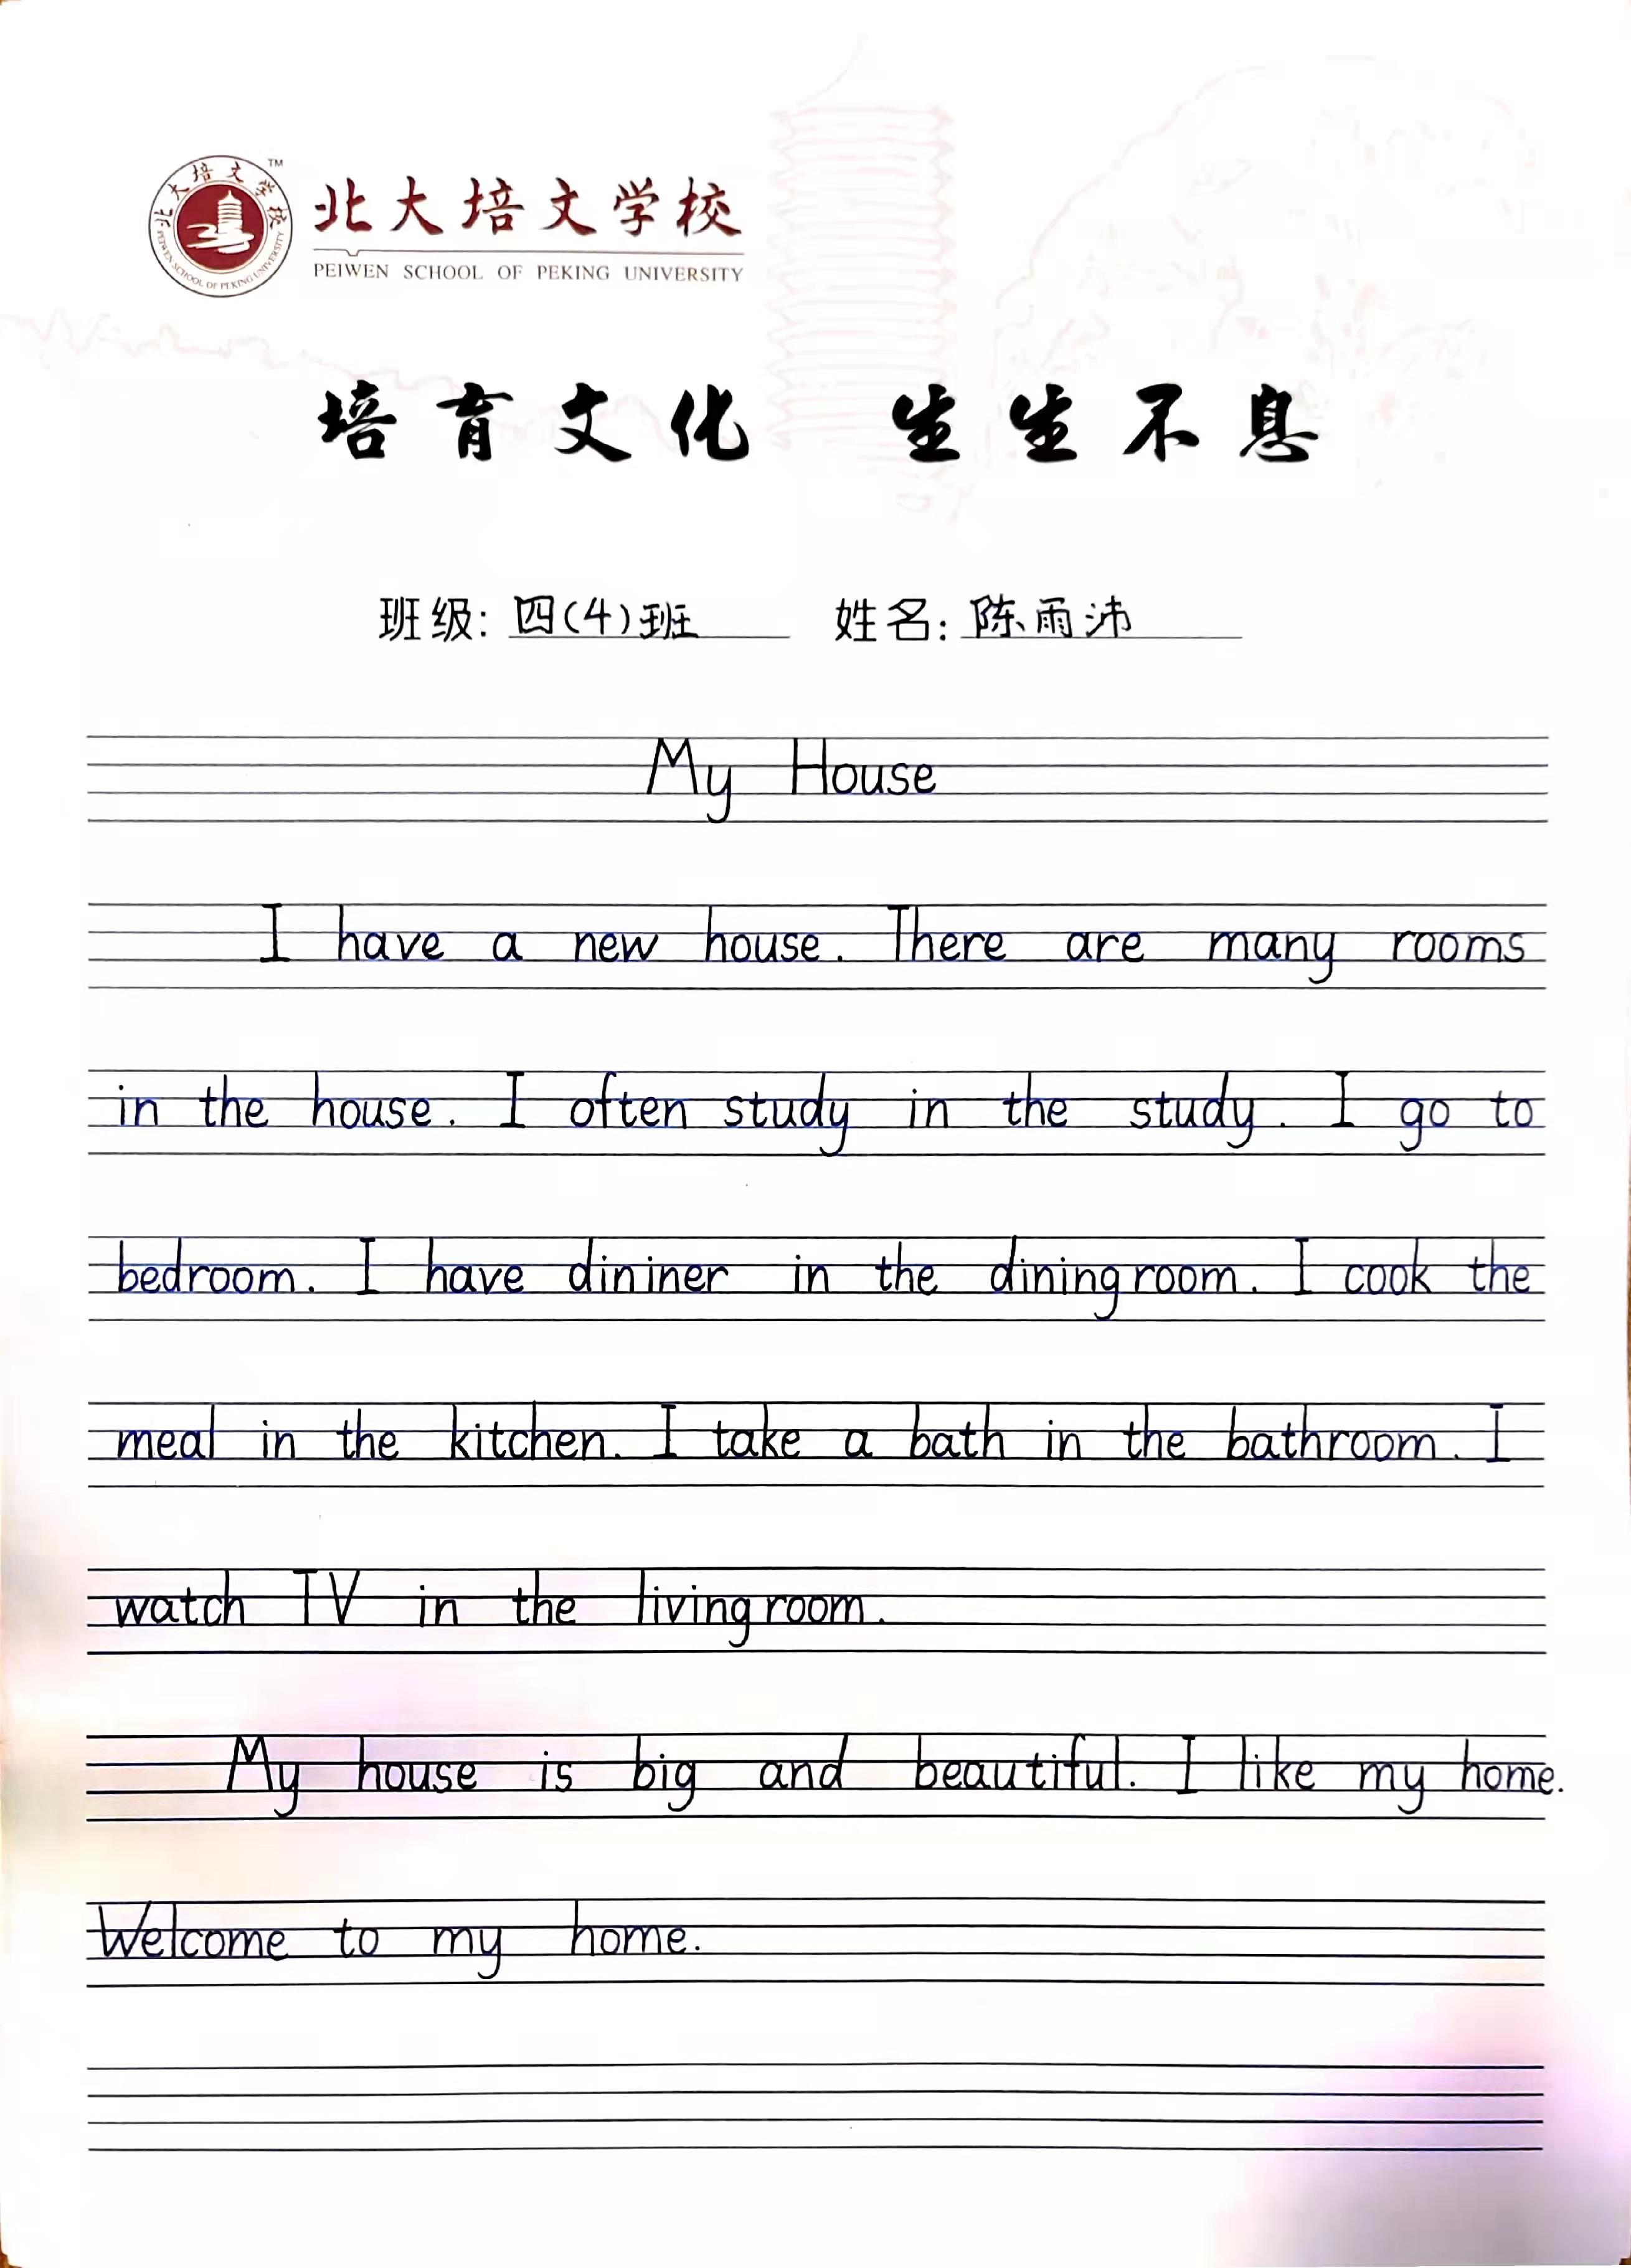 北大培文学校 TM
PEIWEN SCHOOL OF PEKING UNIVERSITY
北大培文学校
PEIWEN SCHOOL OF PEKING UNIVERSITY
培育文化 生生不息
班级: 四(4)班 姓名: 陈雨沛
My House
I have a new house. There are many rooms
in the house. I often study in the study. I go to
bedroom. I have dininer in the diningroom. I cook the
meal in the kitchen. I take a bath in the bathroom. I
watch TV in the livingroom.
My house is big and beautiful. I like my home.
Welcome to my home.